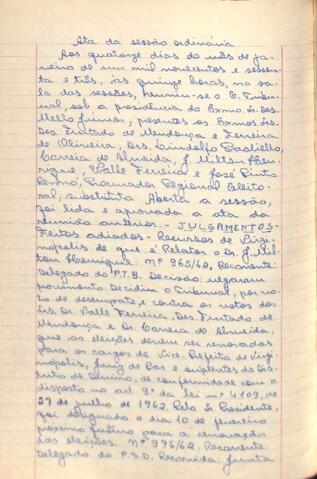 Ata da sessão ordinária
Aos quatorze dias do mês de ja-
neiro de um mil novecentos e sessen-
ta e três, às quinze horas, na sa-
la das sessões, reuniu-se o E. Tribu-
nal, sob a presidência do Exmo. Sr. Des.
Mello Junior, presentes os Exmos. Srs.
Des. Furtado de Mendonça e Ferreira
de Oliveira, Drs. Lindolfo Paoliello,
Correia de Almeida, J. Milton Hen-
rique, Valle Ferreira e José Pinto
Renno, Procurador Regional Eleito-
ral, substituto. Aberta a sessão,
foi lida e aprovada a ata da
reunião anterior. - JULGAMENTOS -
Feitos adiados - Recursos de Virgi-
nópolis de que é Relator o Dr. J. Mil-
ton Henrique. Nº 965/62. Recorrente:
Delegado do P.T.B. Decisão: negaram
provimento. Decidiu o Tribunal, por vo-
to de desempate, e contra os votos dos
Srs. Dr. Valle Ferreira, Des. Furtado de
Mendonça e Dr. Correia de Almeida,
que as eleições devem ser renovadas
para os cargos de Vice-Prefeito de Virgi-
nópolis, Juiz de Paz e suplentes do Dis-
trito de Divino, de conformidade com o
disposto no art. 9º da lei nº 4.109, de
27 de julho de 1962. Pelo Sr. Presidente,
foi designado o dia 10 de fevereiro
próximo futuro para a renovação
das eleições. Nº 976/62. Recorrente:
Delegado do P.S.D. Recorrida: Junta